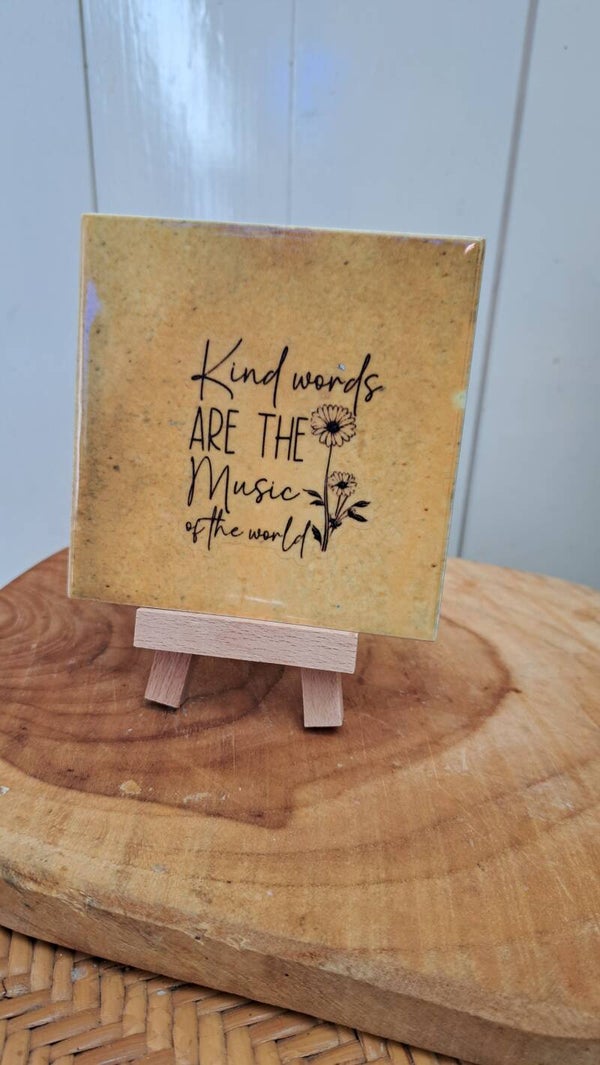 Kind words
ARE THE
Music
of the world